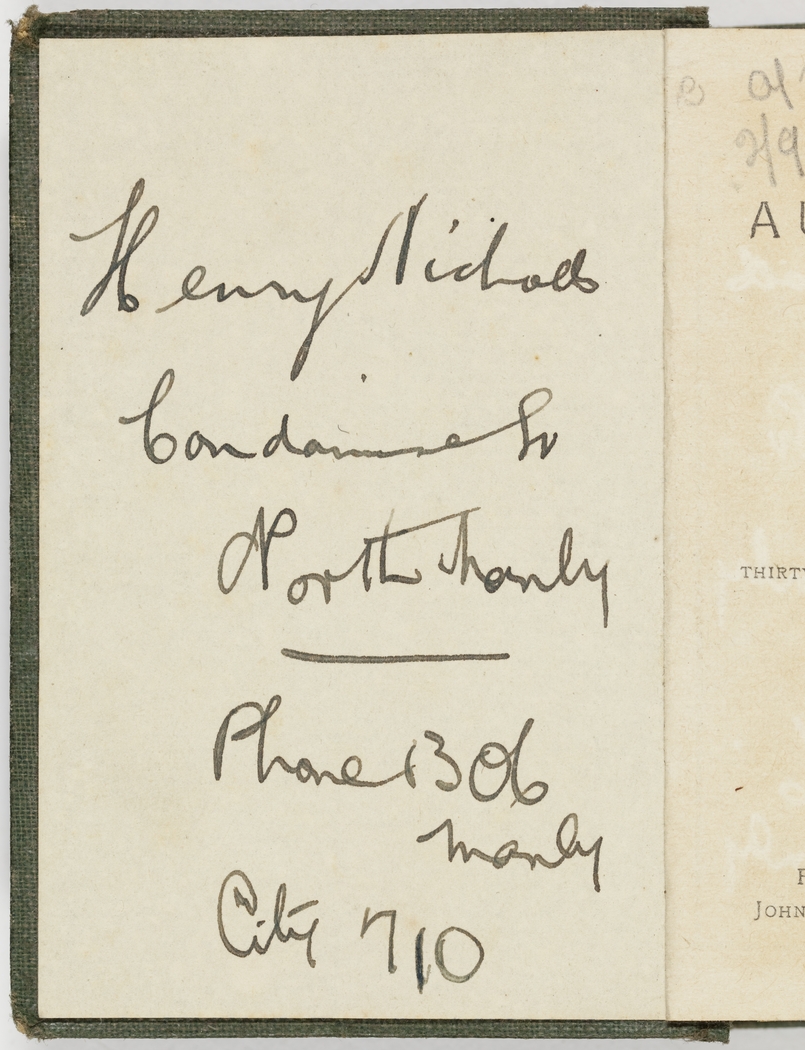 Henry Nicholls
Condamine St
North Manly
Phone 1306
Manly
City 710
B
2/9
AU
THIRTY
JOHN